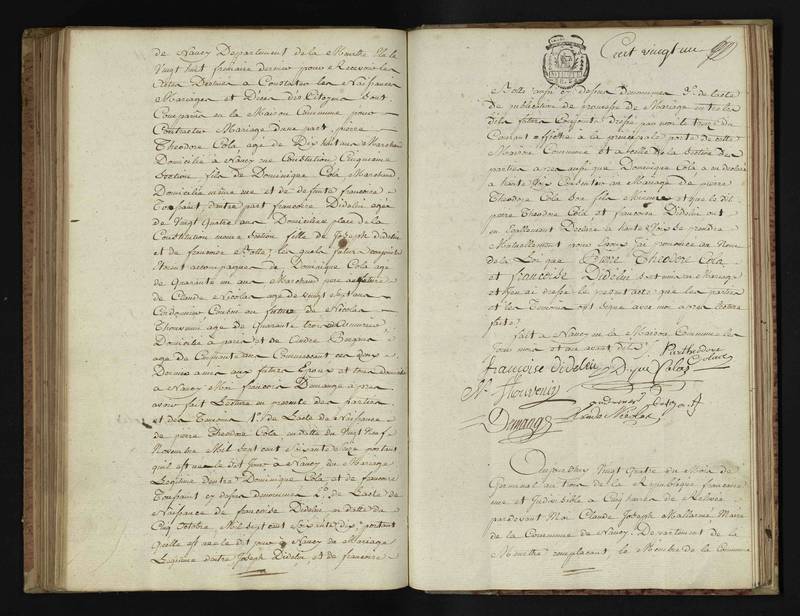 de Nancy Département de la Meurthe élu le
vingt huit frimaire dernier pour Recevoir les
Actes Destinés a Constater les Naissances
Mariages et Décès des Citoyens Sont
Comparus en la Maison Commune pour
Contracter Mariage d'une part pierre
Théodore Cola age de Dix huit ans Marchand
Domicilié a Nancy rue Constitution Cinquieme
Section fils de Dominique Cola Marchand
Domicilié même rue et de défunte francoise
Toussaint d'autre part francoise Didelin agée
de Vingt quatre ans Domiciliée place de la
Constitution même Section fille de Joseph Didelin
et de francoise Botte; les quels futurs conjoints
étoient accompagnés de Dominique Cola age
de Quarante un ans Marchand pere au futur
de Claude Nicolas age de vingt sept ans
Cordonnier Cousin au futur, de Nicolas
Thouvenin age de Quarante trois ans
Domicilié a paris et de Andre
age de Cinquante ans Commercant ces deux
Derniers amis aux futurs Epoux et tous domiciliés
a Nancy Moi francois Demange apres
avoir fait Lecture en présence des parties
et des Temoins 1º de l'acte de Naissance
de pierre Théodore Cola, en datte du Vingt Neuf
Novembre Mil Sept cent Soixante portant
qu'il est né le dit Jour a Nancy du Mariage
Legitime d'entre Dominique Cola, et de francoise
Toussaint ex dessus denommés 2º de l'acte de
Naissance de francoise Didelin en datte du
Cinq octobre Mil sept cent Soixante dix portant
qu'elle est née le dit jour a Nancy du Mariage
Legitime d'entre Joseph Didelin, et de francoise
Cent vingt un
Botte aussi cy dessus Denommés 3º de l'acte
de publication de promesse de Mariage entre les
dits futurs Conjoints dressé par moi le
Courant affiché a la principale porte de cette
Maison Commune et a celle de la Section des
parties apres aussi que Dominique Cola a eu declaré
a haute Voix Consentir au Mariage de pierre
Théodore Cola Son fils Mineur et que le dit
pierre Théodore Cola et francoise Didelin ont
eu Egallement Declaré a haute Voix se prendre
Mutuellement pour Epoux j'ai prononcé au Nom
de la Loi que Pierre Théodore Cola
et francoise Didelin sont unis en Mariage
et j'en ai dressé le present acte que les parties
et les Temoins ont signé avec moi apres lecture
faite;
fait a Nancy en la Maison Commune les
Jour mois et an avant dits
Pierre Théodore
Colas
françoise didelin
D que Colas
N. Thouvenin
Claude Nicolas
Demange
Aujourdhuy Vingt Quatre du Mois de
Germinal an trois de la Republique francoise
une et Indivisible a Cinq heures de Relevée
pardevant Moi Claude Joseph Mallarmé Maire
de la Commune de Nancy Département de la
Meurthe remplacant le Membre de la Commune